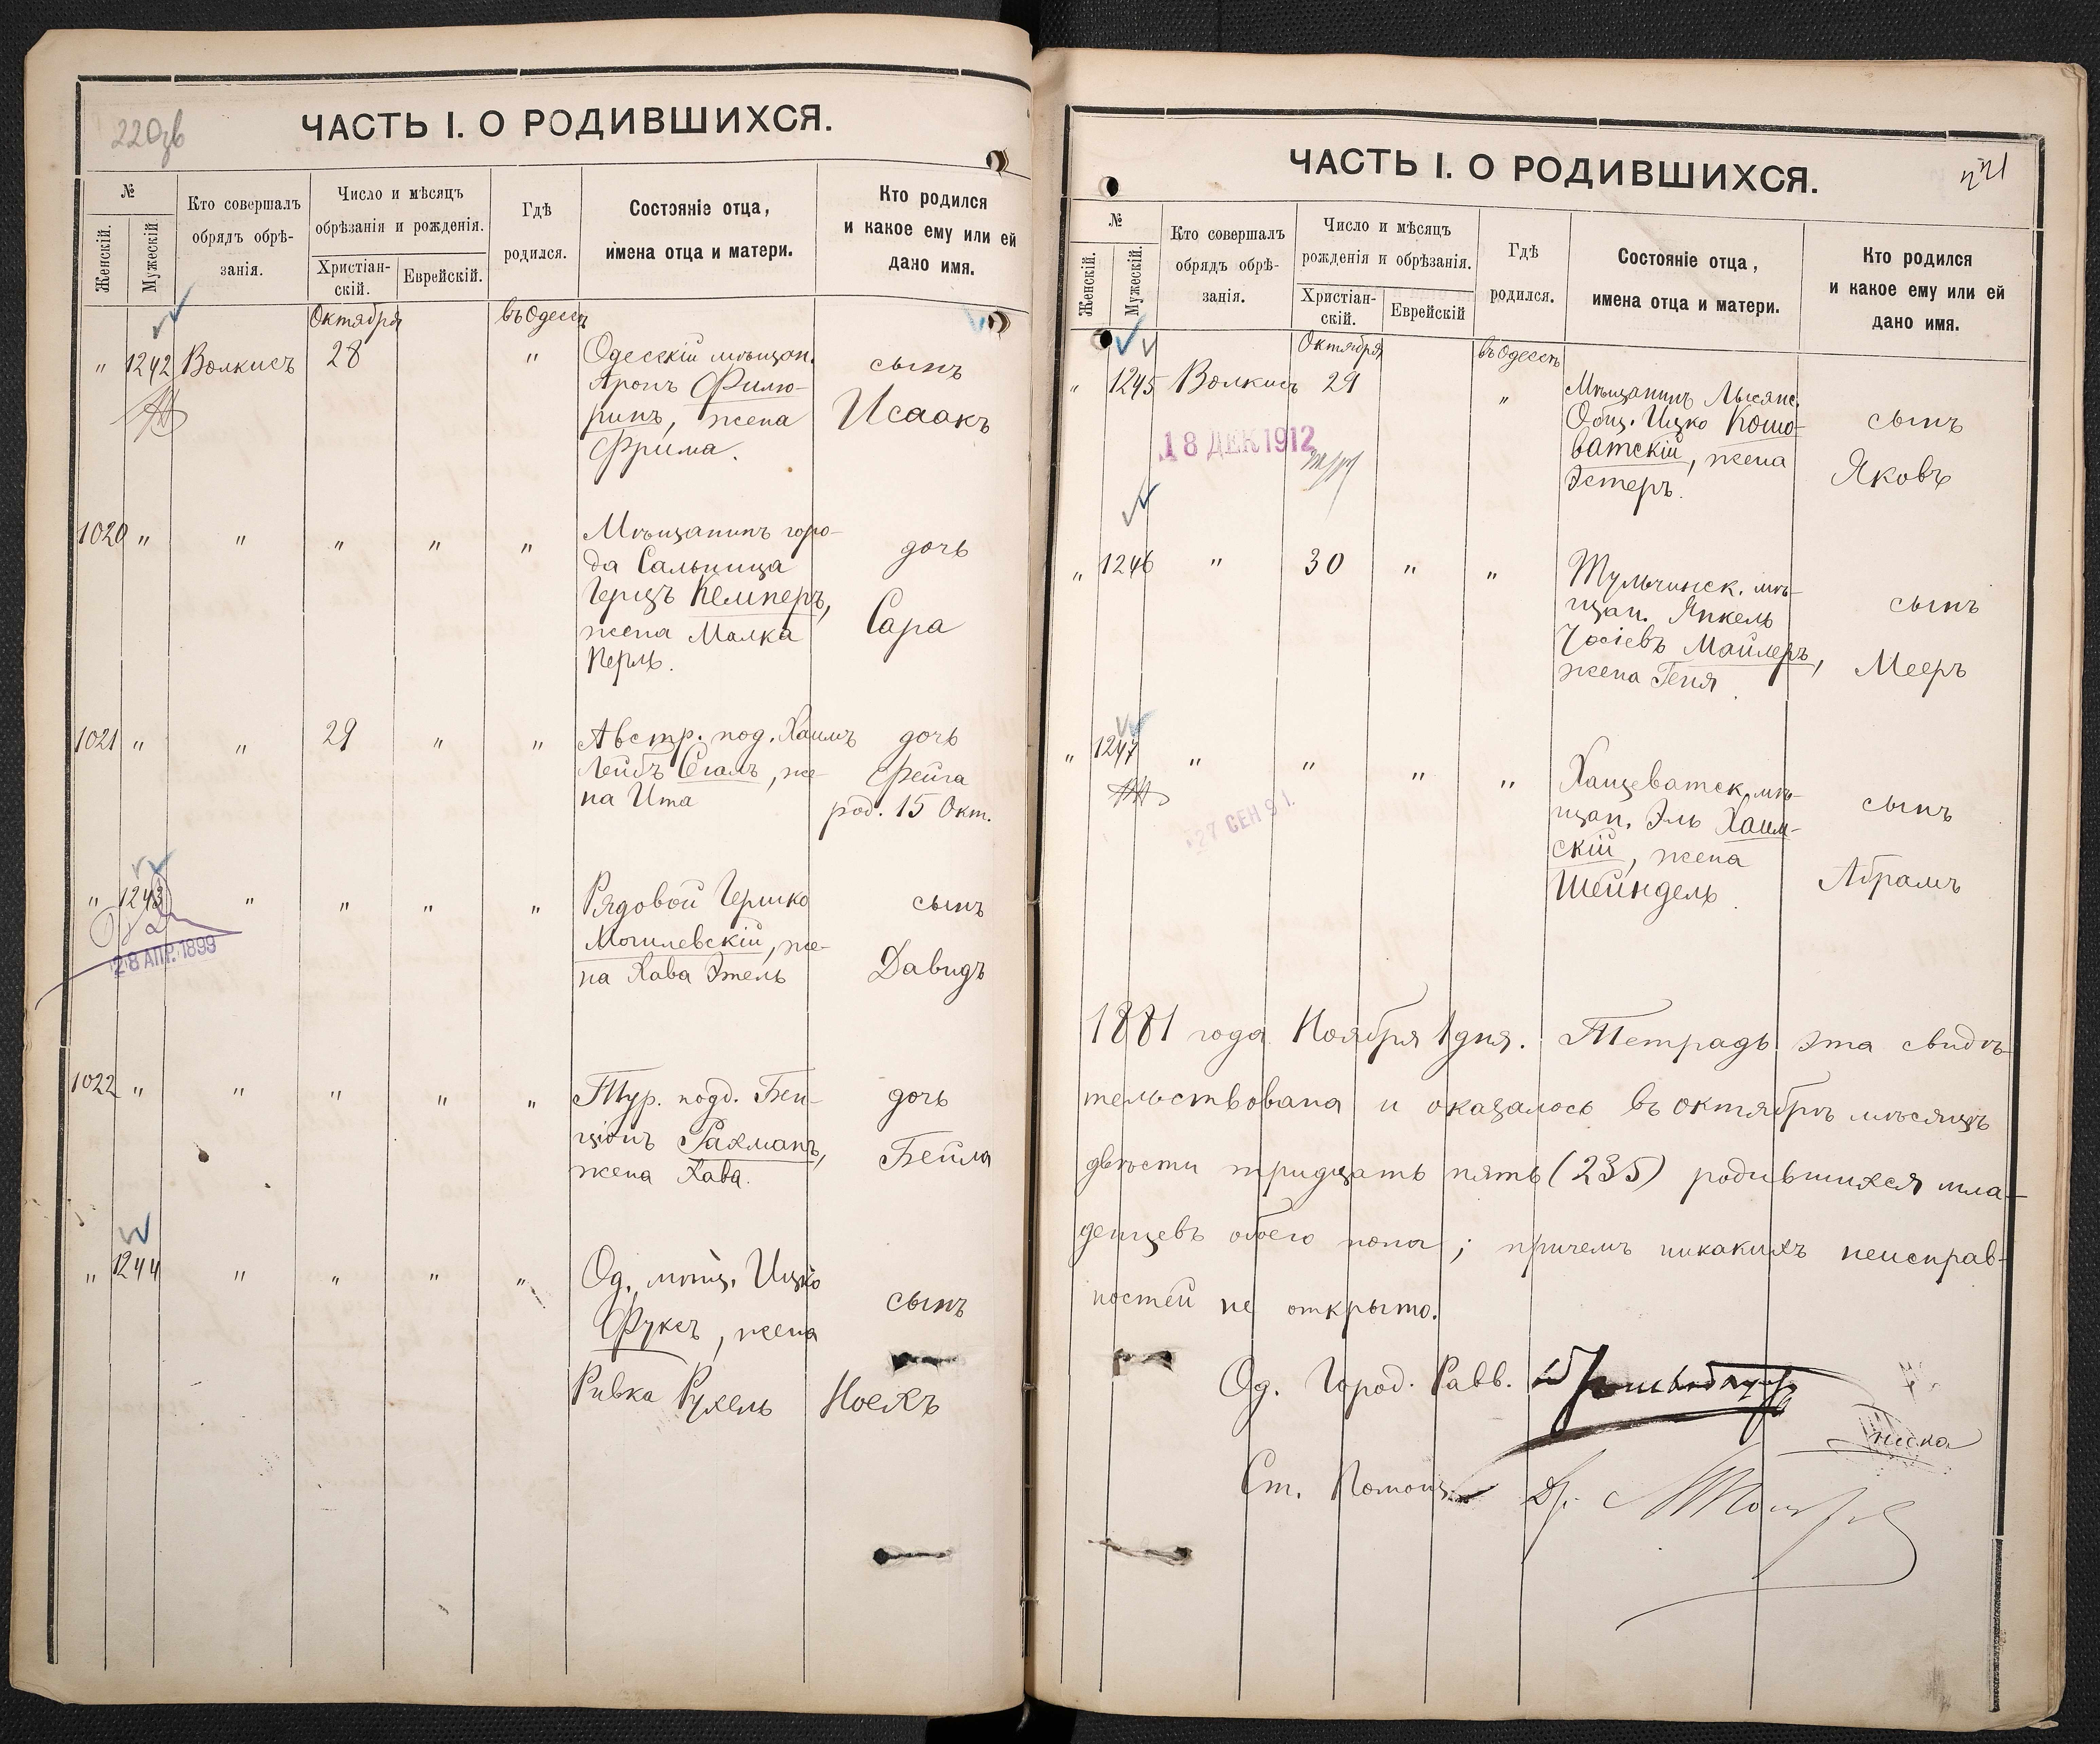 220зв
ЧАСТЬ I. О РОДИВШИХСЯ.
№
Женскій.
Мужескій
Кто совершалъ
обрядъ обрѣ-
занія.
Число и мѣсяцъ
обрѣзанія и рожденія.
Христіан-
скій.
Еврейскій.
Гдѣ
родился.
Состояніе отца,
имена отца и матери.
Кто родился
и какое ему или ей
дано имя.
Октября
въ Одессѣ
" 1242 Волкисъ 28 " Одесскій мѣщан. сынъ
Аронъ Филю-
ринъ, жена Исаакъ
Фрима.
1020 " " " " " Мѣщанинъ горо- дочь
да Сальница
Герцъ Кемперъ,
жена Малка Сара
Перль.
1021 " " 29 " " Австр. под. Хаимъ дочь
Лейбъ Сгалъ, же- Фейга
на Ита род. 15 Окт.
" 1243 " " " " Рядовой Гершко сынъ
Могилевскій, же-
на Хава Этель Давидъ
28 АПР. 1899
1022 " " " " " Тур. подд. Бен- дочь
ціонъ Рахманъ,
жена Хава. Бейла
" 1244 " " " " Од. мѣщ. Ицко
Фуксъ, жена сынъ
Ривка Рухель Ноехъ
221
ЧАСТЬ I. О РОДИВШИХСЯ.
№
Женскій.
Мужескій.
Кто совершалъ
обрядъ обрѣ-
занія.
Число и мѣсяцъ
рожденія и обрѣзанія.
Христіан-
скій.
Еврейскій
Гдѣ
родился.
Состояніе отца,
имена отца и матери.
Кто родился
и какое ему или ей
дано имя.
Октября
въ Одессѣ
" 1245 Волкисъ 29 " Мѣщанинъ Лысянс.
Общ. Ицко Кошо- сынъ
ватскій, жена
Эстеръ. Яковъ
18 ДЕК 1912
" 1246 " 30 " " Тульчинск. мѣ-
щан. Янкель сынъ
Іосіевъ Майлеръ,
жена Геня Мееръ
" 1247 " " " " Хащеватск. мѣ-
щан. Эль Хаим- сынъ
скій, жена
Шейндель Абрамъ
27 СЕН 91.
1881 года Ноября 1 дня. Тетрадь эта свидѣ-
тельствована и оказалось въ октябрѣ мѣсяцѣ
двѣсти тридцать пять (235) родившихся мла-
денцевъ обоего пола; причемъ никакихъ неисправ-
ностей не открыто.
Од. Город. Равв.
Ст. Помощ. Др.